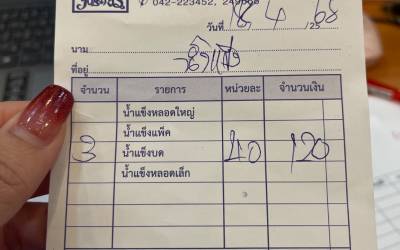 042-223452, 249666
วันที่ 18 4 /25 68
นาม
ที่อยู่
จำนวน รายการ หน่วยละ จำนวนเงิน
น้ำแข็งหลอดใหญ่
น้ำแข็งแพ็ค
3 น้ำแข็งบด 40 120
น้ำแข็งหลอดเล็ก